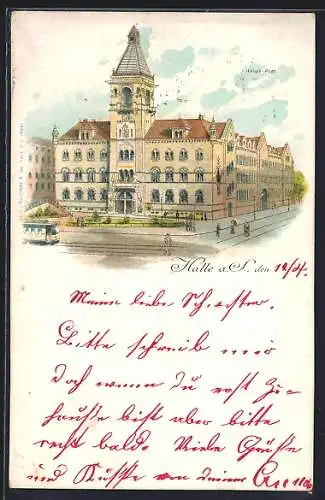 Haupt-Post
Halle a. S. den 12/4.
Meine liebe Schwester.
Bitte schreib mir
doch wann du erst zu-
hause bist aber bitte
recht bald. Viele Grüße
und Küsse von deiner